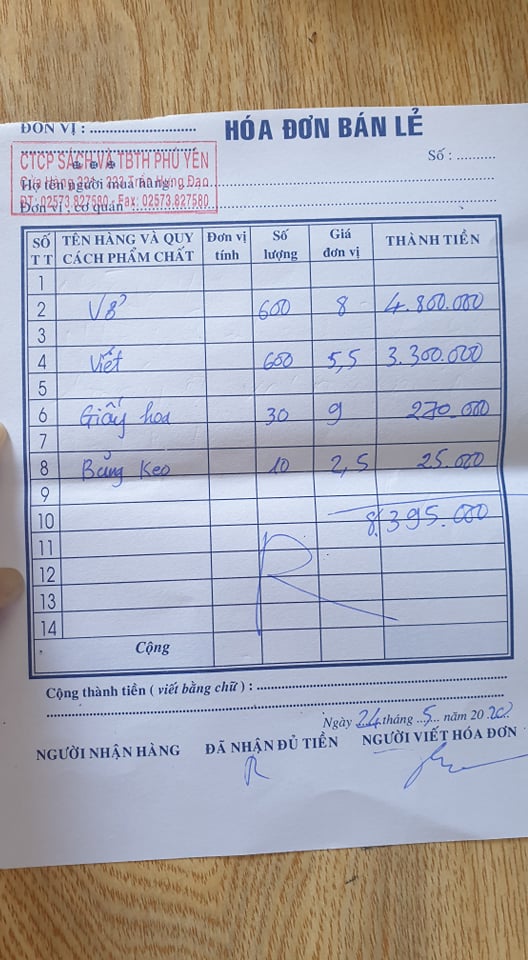 ĐƠN VỊ : ............................
HÓA ĐƠN BÁN LẺ
CTCP SÁCH VÀ TBTH PHÚ YÊN
Số : ..........
Cửa Hàng 221 - 223 Trần Hưng Đạo
Họ tên người mua hàng:
ĐT: 02573.827580 - Fax: 02573.827580
Đơn vị, cơ quan :
SỐ TT TÊN HÀNG VÀ QUY CÁCH PHẨM CHẤT Đơn vị tính Số lượng Giá đơn vị THÀNH TIỀN
1
2 Vở 600 8 4.800.000
3
4 Viết 600 5,5 3.300.000
5
6 Giấy hoa 30 9 270.000
7
8 Băng keo 10 2,5 25.000
9
10 8.395.000
11
12
13
14
Cộng
Cộng thành tiền ( viết bằng chữ ) :
Ngày 24 tháng 5 năm 2020
NGƯỜI NHẬN HÀNG ĐÃ NHẬN ĐỦ TIỀN NGƯỜI VIẾT HÓA ĐƠN